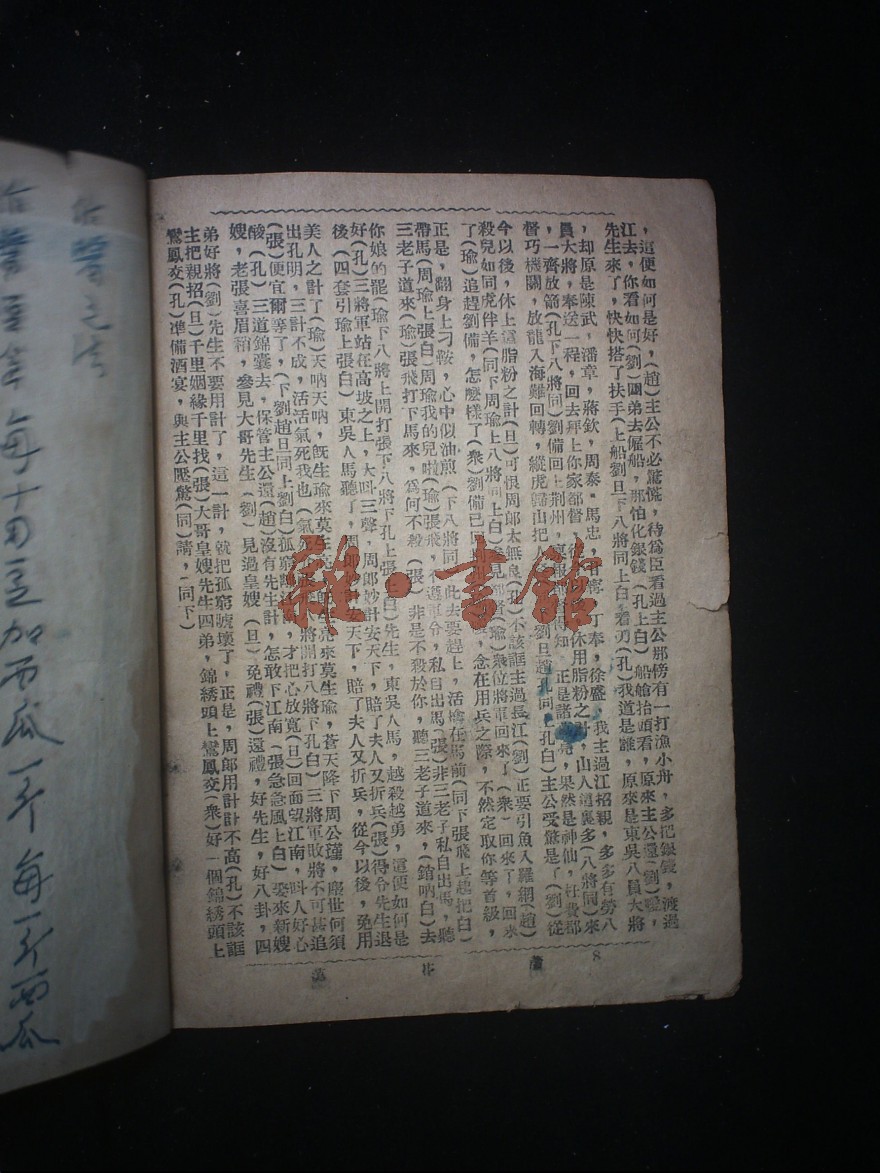 ，這便如何是好，(趙)主公不必驚慌，待爲臣看過主公那傍有一打漁小舟，多把銀錢，渡過
江去，你看如何(劉)四弟去僱船，那怕化銀錢(孔上白)船艙抬頭看，原來主公還(劉)
先生來了，快快搭了扶手(上船劉旦下八將同上白)看刀(孔)我道是誰，原來是東吳八員大將
，却原是陳武，潘章，蔣欽，周泰，馬忠，丁奉，徐盛，我主過江招親，多多有勞八
員大將，奉送一程，回去拜上你家都督，休用脂粉之計，山人這裏多(八將同)來
，一齊放箭(孔下八將同)劉備回上荆州，正是諸葛亮，果然是神仙，枉費都
督巧機關，放龍入海難回轉，縱虎歸山把人(劉旦趙孔同上孔白)主公受驚是了(劉)從
今以後，休上這脂粉之計(旦)可恨周郎太無良(孔)不該誆主過長江(劉)正要引魚入羅網(趙)
殺兒如同虎伴羊(同下周瑜上八將同上白)參見都督(瑜)衆位將軍回來了(衆)回來了，回來
了(瑜)追趕劉備，怎麽樣了(衆)劉備已回，念在用兵之際，不然定取你等首級，
正是，翻身上刁鞍，心中似油煎(下八將同)此去要趕上，活擒在馬前(同下張飛上趟把白)
帶馬(周瑜上張白)周瑜我的兒啦(瑜)張飛，不遵軍令，私自出馬(張)非三老子私自出馬，聽
三老子道來(瑜)張飛打下馬來，爲何不殺(張)非是不殺於你，聽三老子道來，(銷吶白)去
你娘的罷(瑜下八將上開打張下八將下孔上張上白)先生，東吳人馬，越殺越勇，這便如何是
好(孔)三將軍站在高坡之上，大叫三聲，周郎妙計安天下，賠了夫人又折兵(張)得令先生退
後(四套引瑜上張白)東吳人馬聽了，周郎妙計安天下，賠了夫人又折兵，從今以後，免用
美人之計了(瑜)天吶天吶，旣生瑜來莫生亮，旣生亮來莫生瑜，蒼天降下周公瑾，塵世何須
出孔明，三計不成，活活氣死我也(氣死八將開打八將下孔白)三將軍敗將不可甚追
(張)便宜爾等了，(下劉趙旦同上劉白)孤窮離，才把心放寬(旦)回面望江南，叫人好心
酸(孔)三道錦囊去，保管主公還(趙)沒有先生計，怎敢下江南(張急急風上白)娶來新嫂
嫂，老張喜眉稍，參見大哥先生(劉)見過皇嫂(旦)免禮(張)還禮，好先生，好八卦，四
弟好將(劉)先生不要用計了，這一計，就把孤窮唬壞了，正是，周郎用計計不高(孔)不該誆
主把親招(旦)千里姻緣千里找(張)大哥皇嫂先生四弟，錦綉頭上鸞鳳交(衆)好一個錦綉頭上
鸞鳳交(孔)準備酒宴，與主公壓驚(同)請，(同下)
8
雜·書館
每十斤豆加西瓜一斤每一斤西瓜